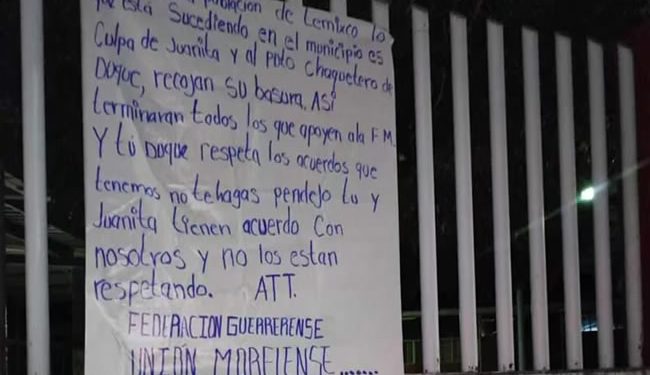 población de Temixco lo
que está sucediendo en el municipio es
Culpa de Juanita y al puto chaquetero de
Duque, recojan su basura. Así
terminaran todos los que apoyen ala F M.
Y tú Duque respeta los acuerdos que
tenemos no te hagas pendejo tu y
Juanita tienen acuerdo con
nosotros y no los estan
respetando. ATT.
FEDERACION GUERRERENSE
UNIÓN MORELENSE.......